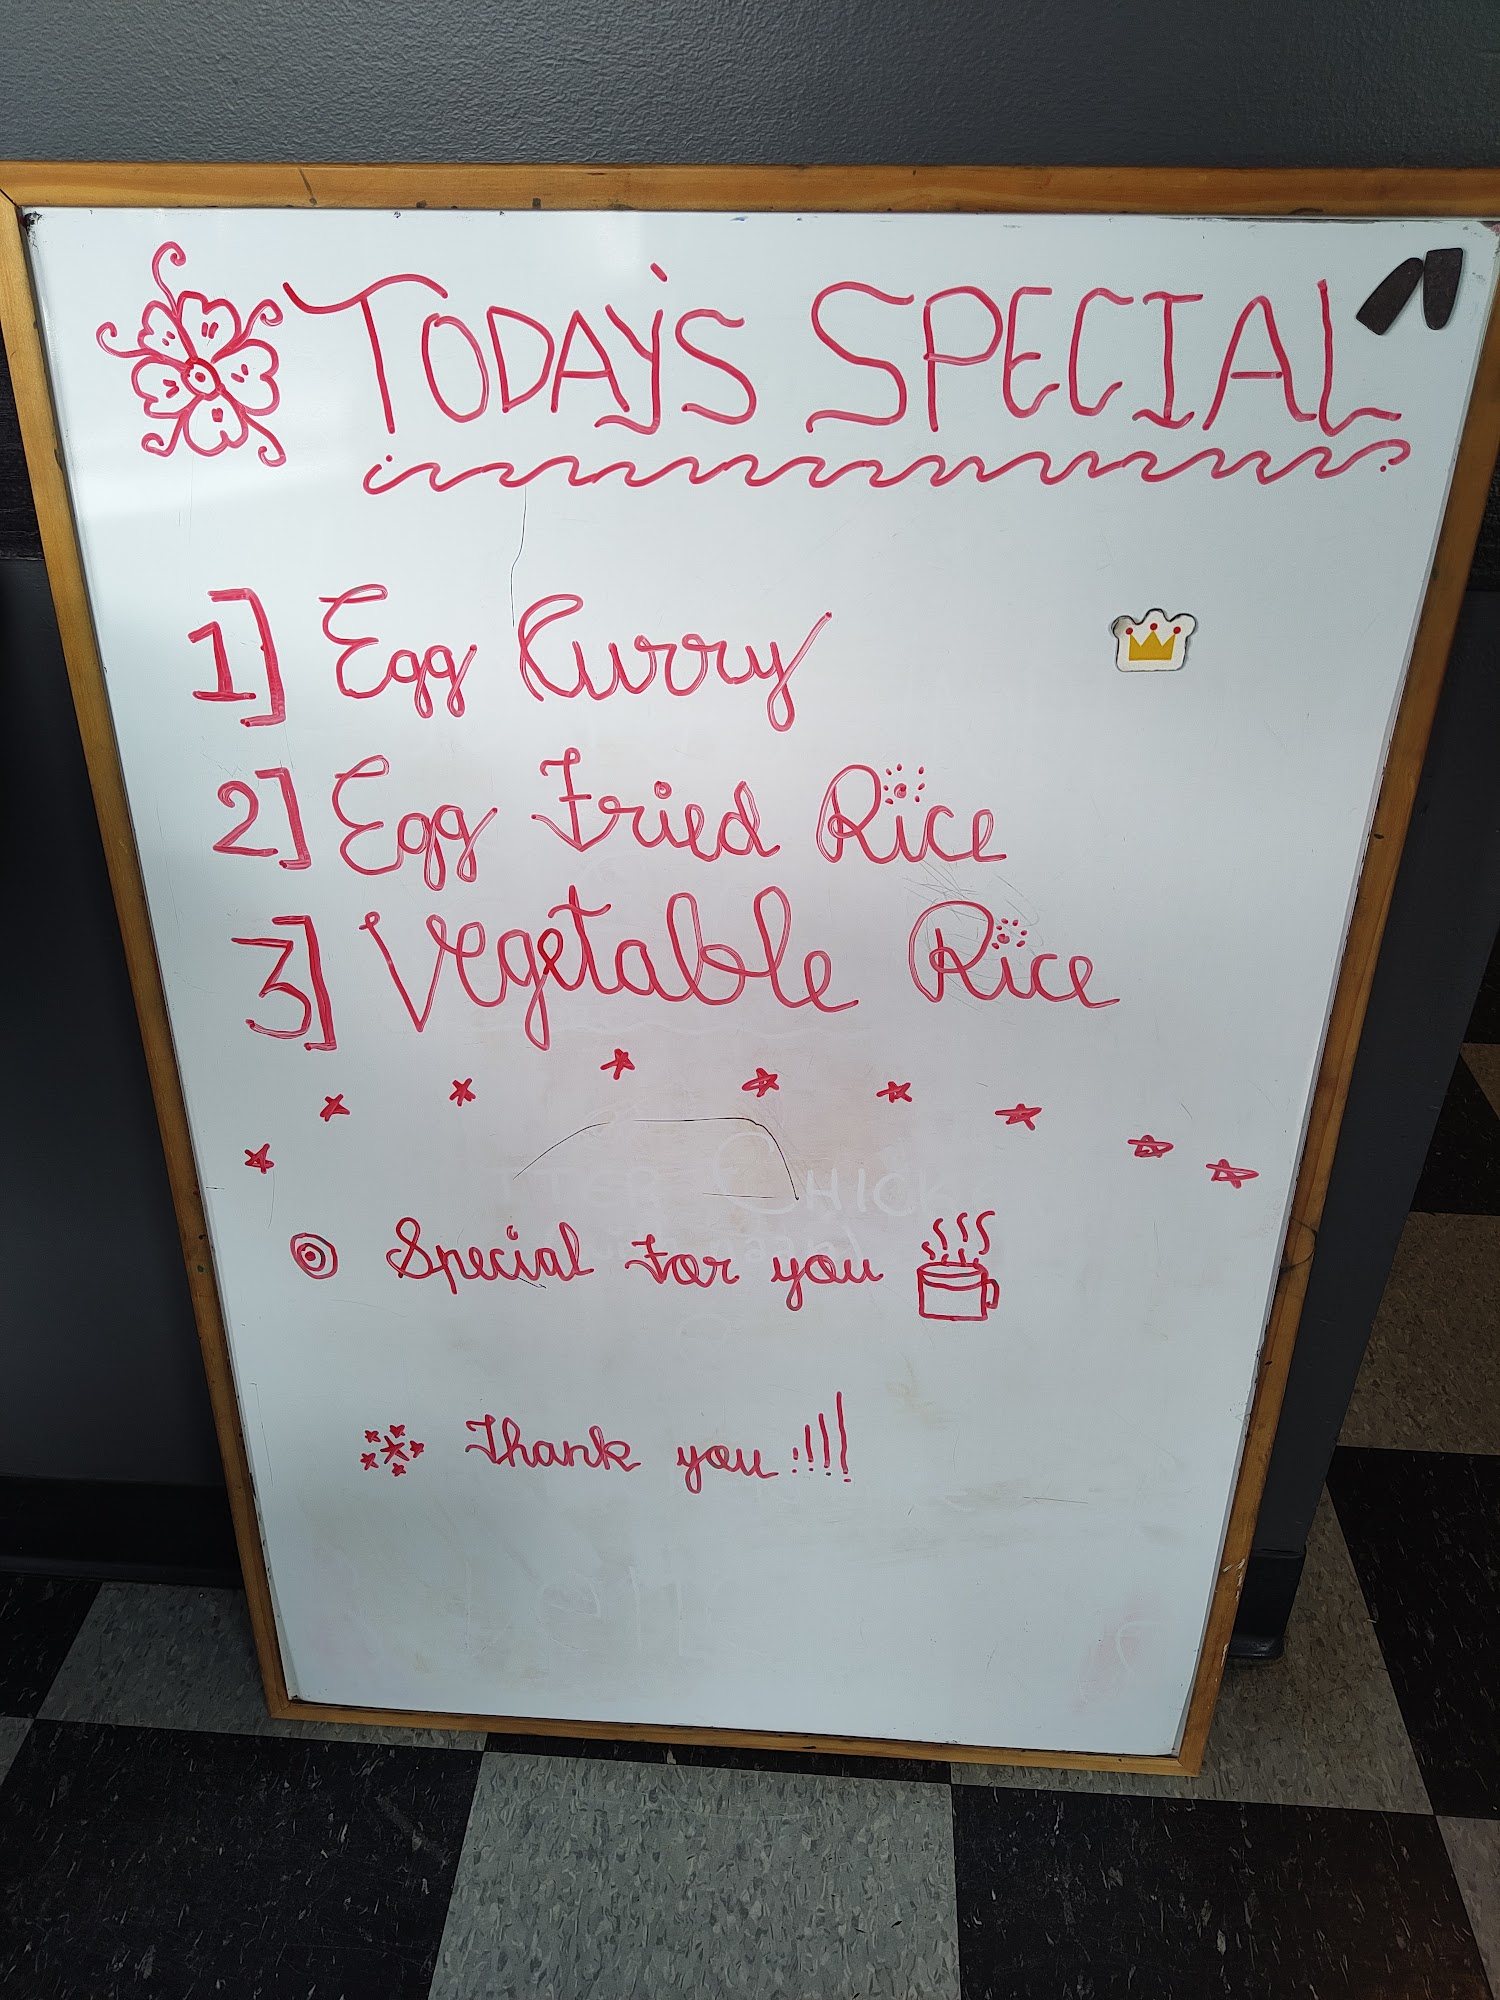 TODAY'S SPECIAL
1] Egg Kurry
2] Egg Fried Rice
3] Vegetable Rice
CHICK
Special For you
Thank you !!!!